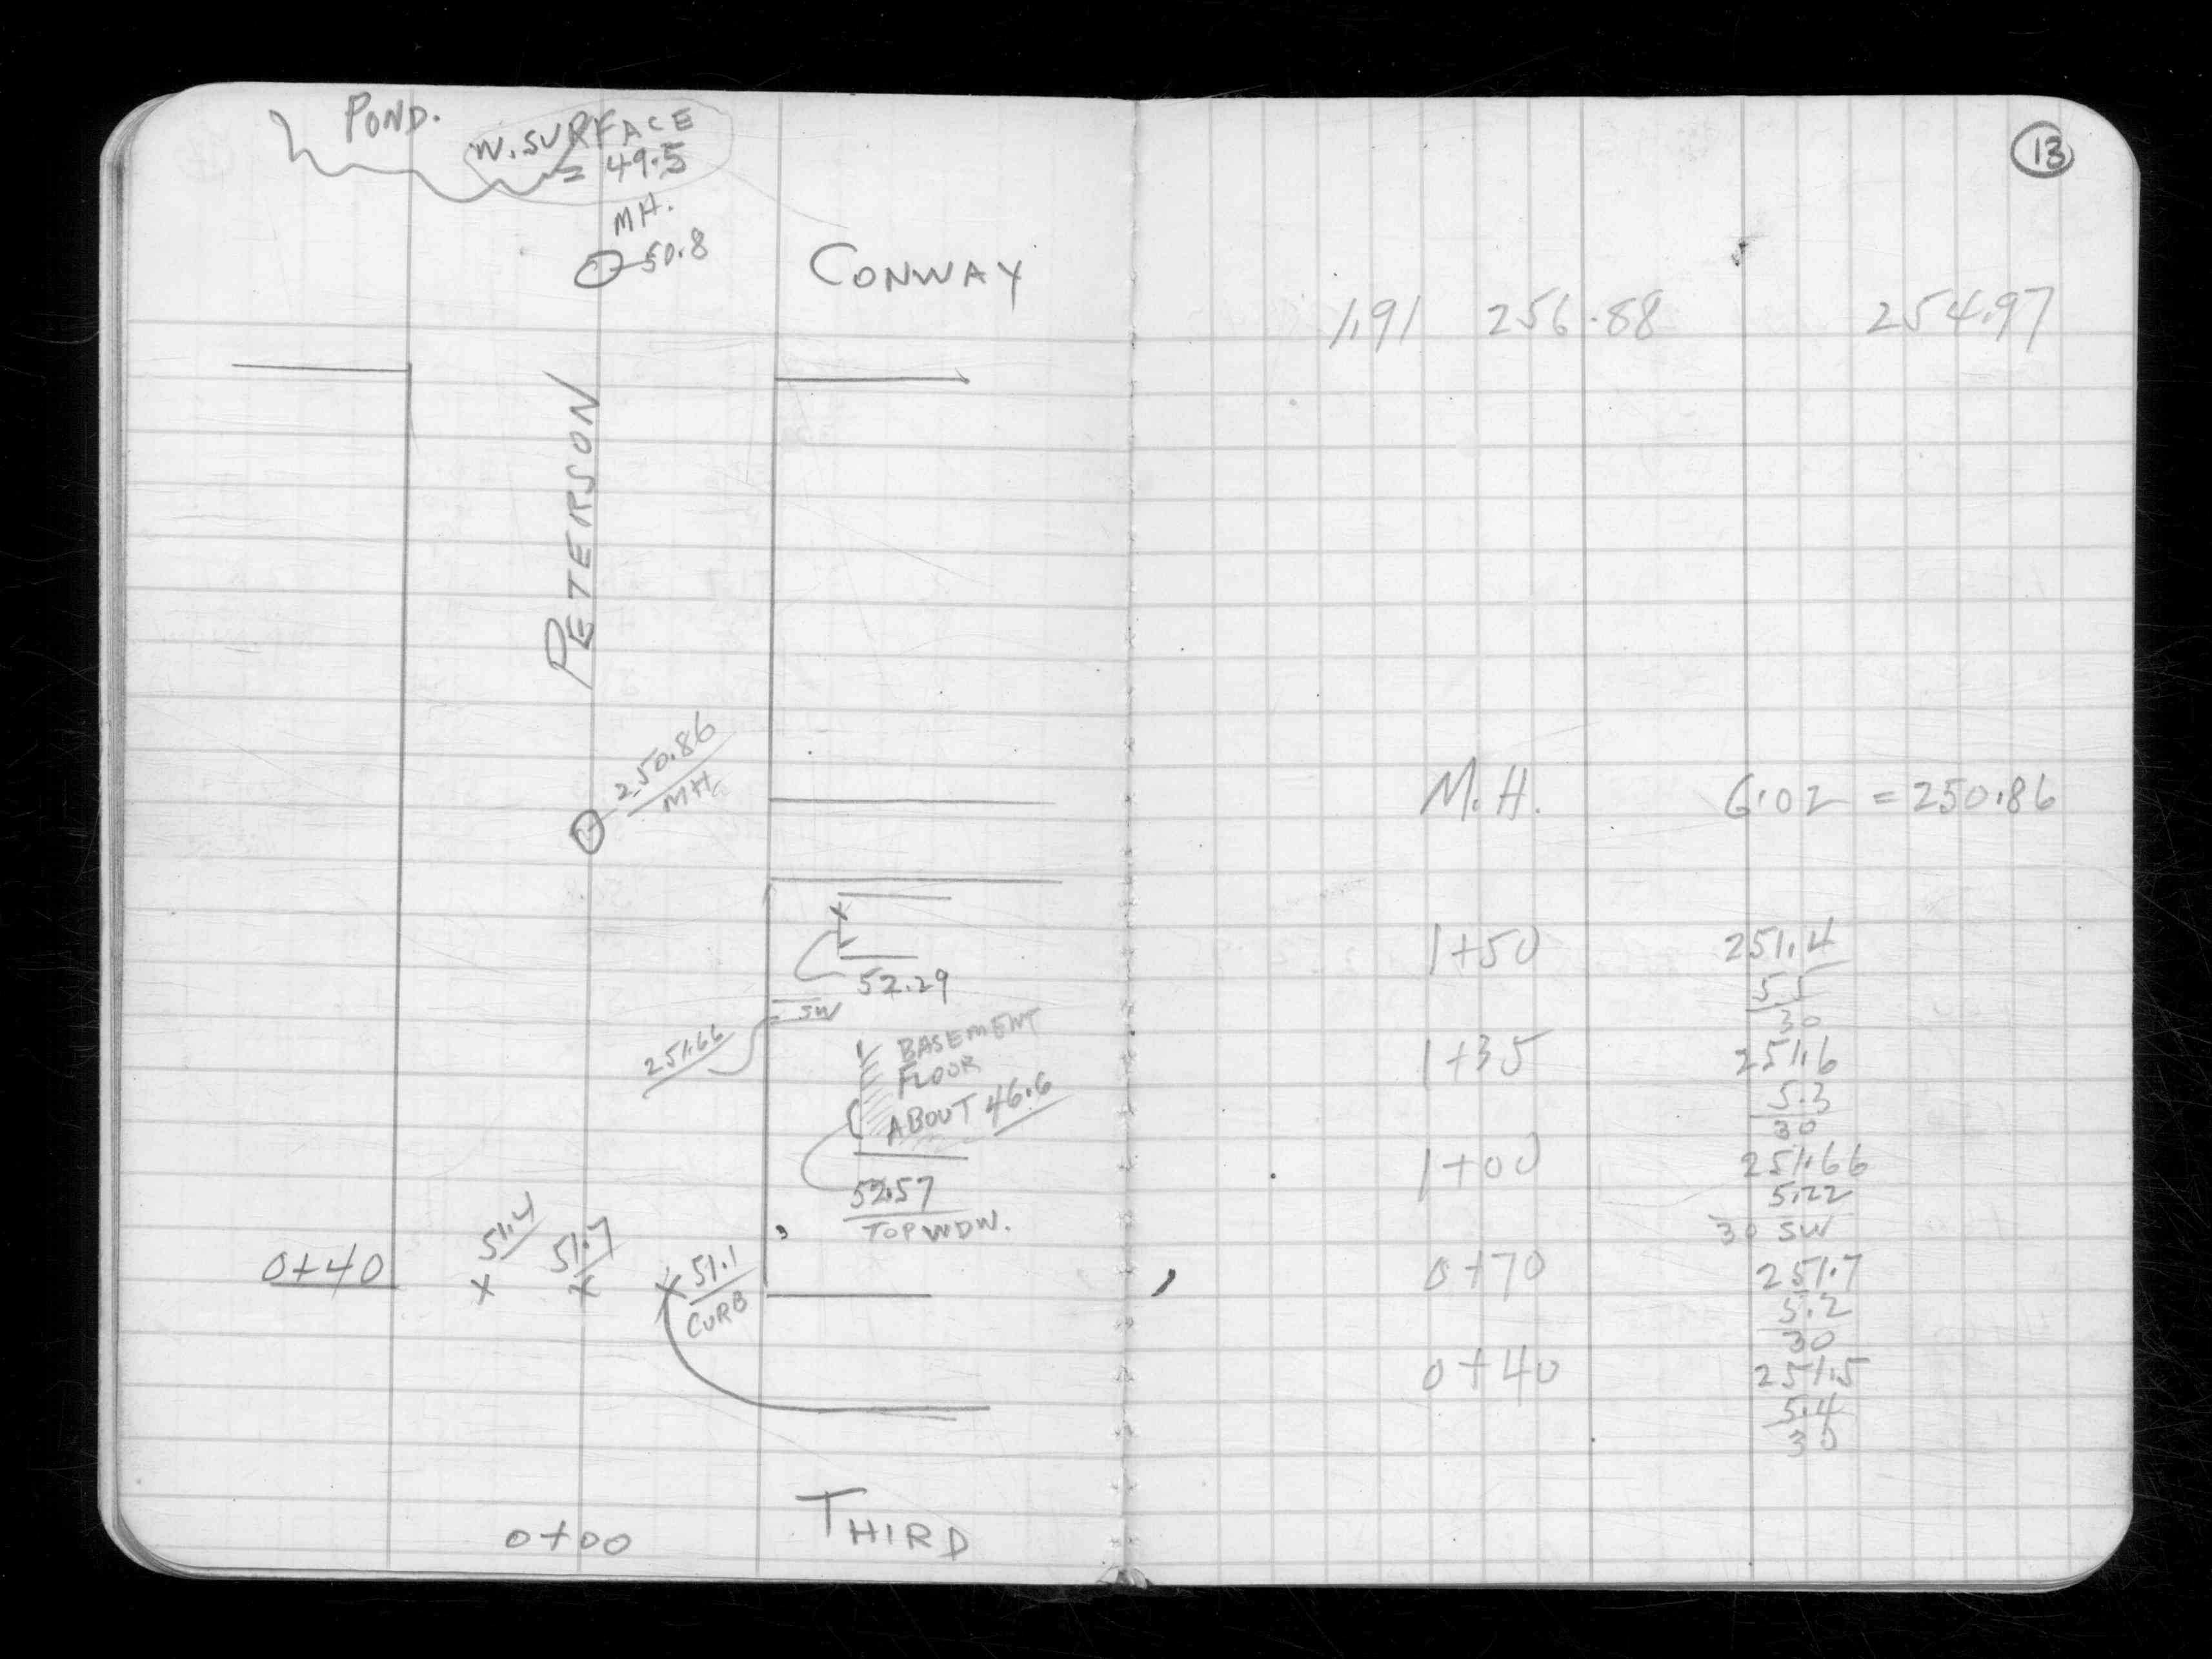 POND.
W. SURFACE
= 49.5
MH.
50.8
CONWAY
PETERSON
250.86
MH.
52.29
SW
251.66
BASEMENT
FLOOR
ABOUT 46.6
52.57
TOP WDW.
0+40
51.4
51.7
51.1
CURB
THIRD
0+00
13
1.91 256.88 254.97
M.H. 6.02 = 250.86
1+50 251.4
5.5
30
1+35 251.6
5.3
30
1+00 251.66
5.22
30 SW
0+70 251.7
5.2
30
0+40 251.5
5.4
30